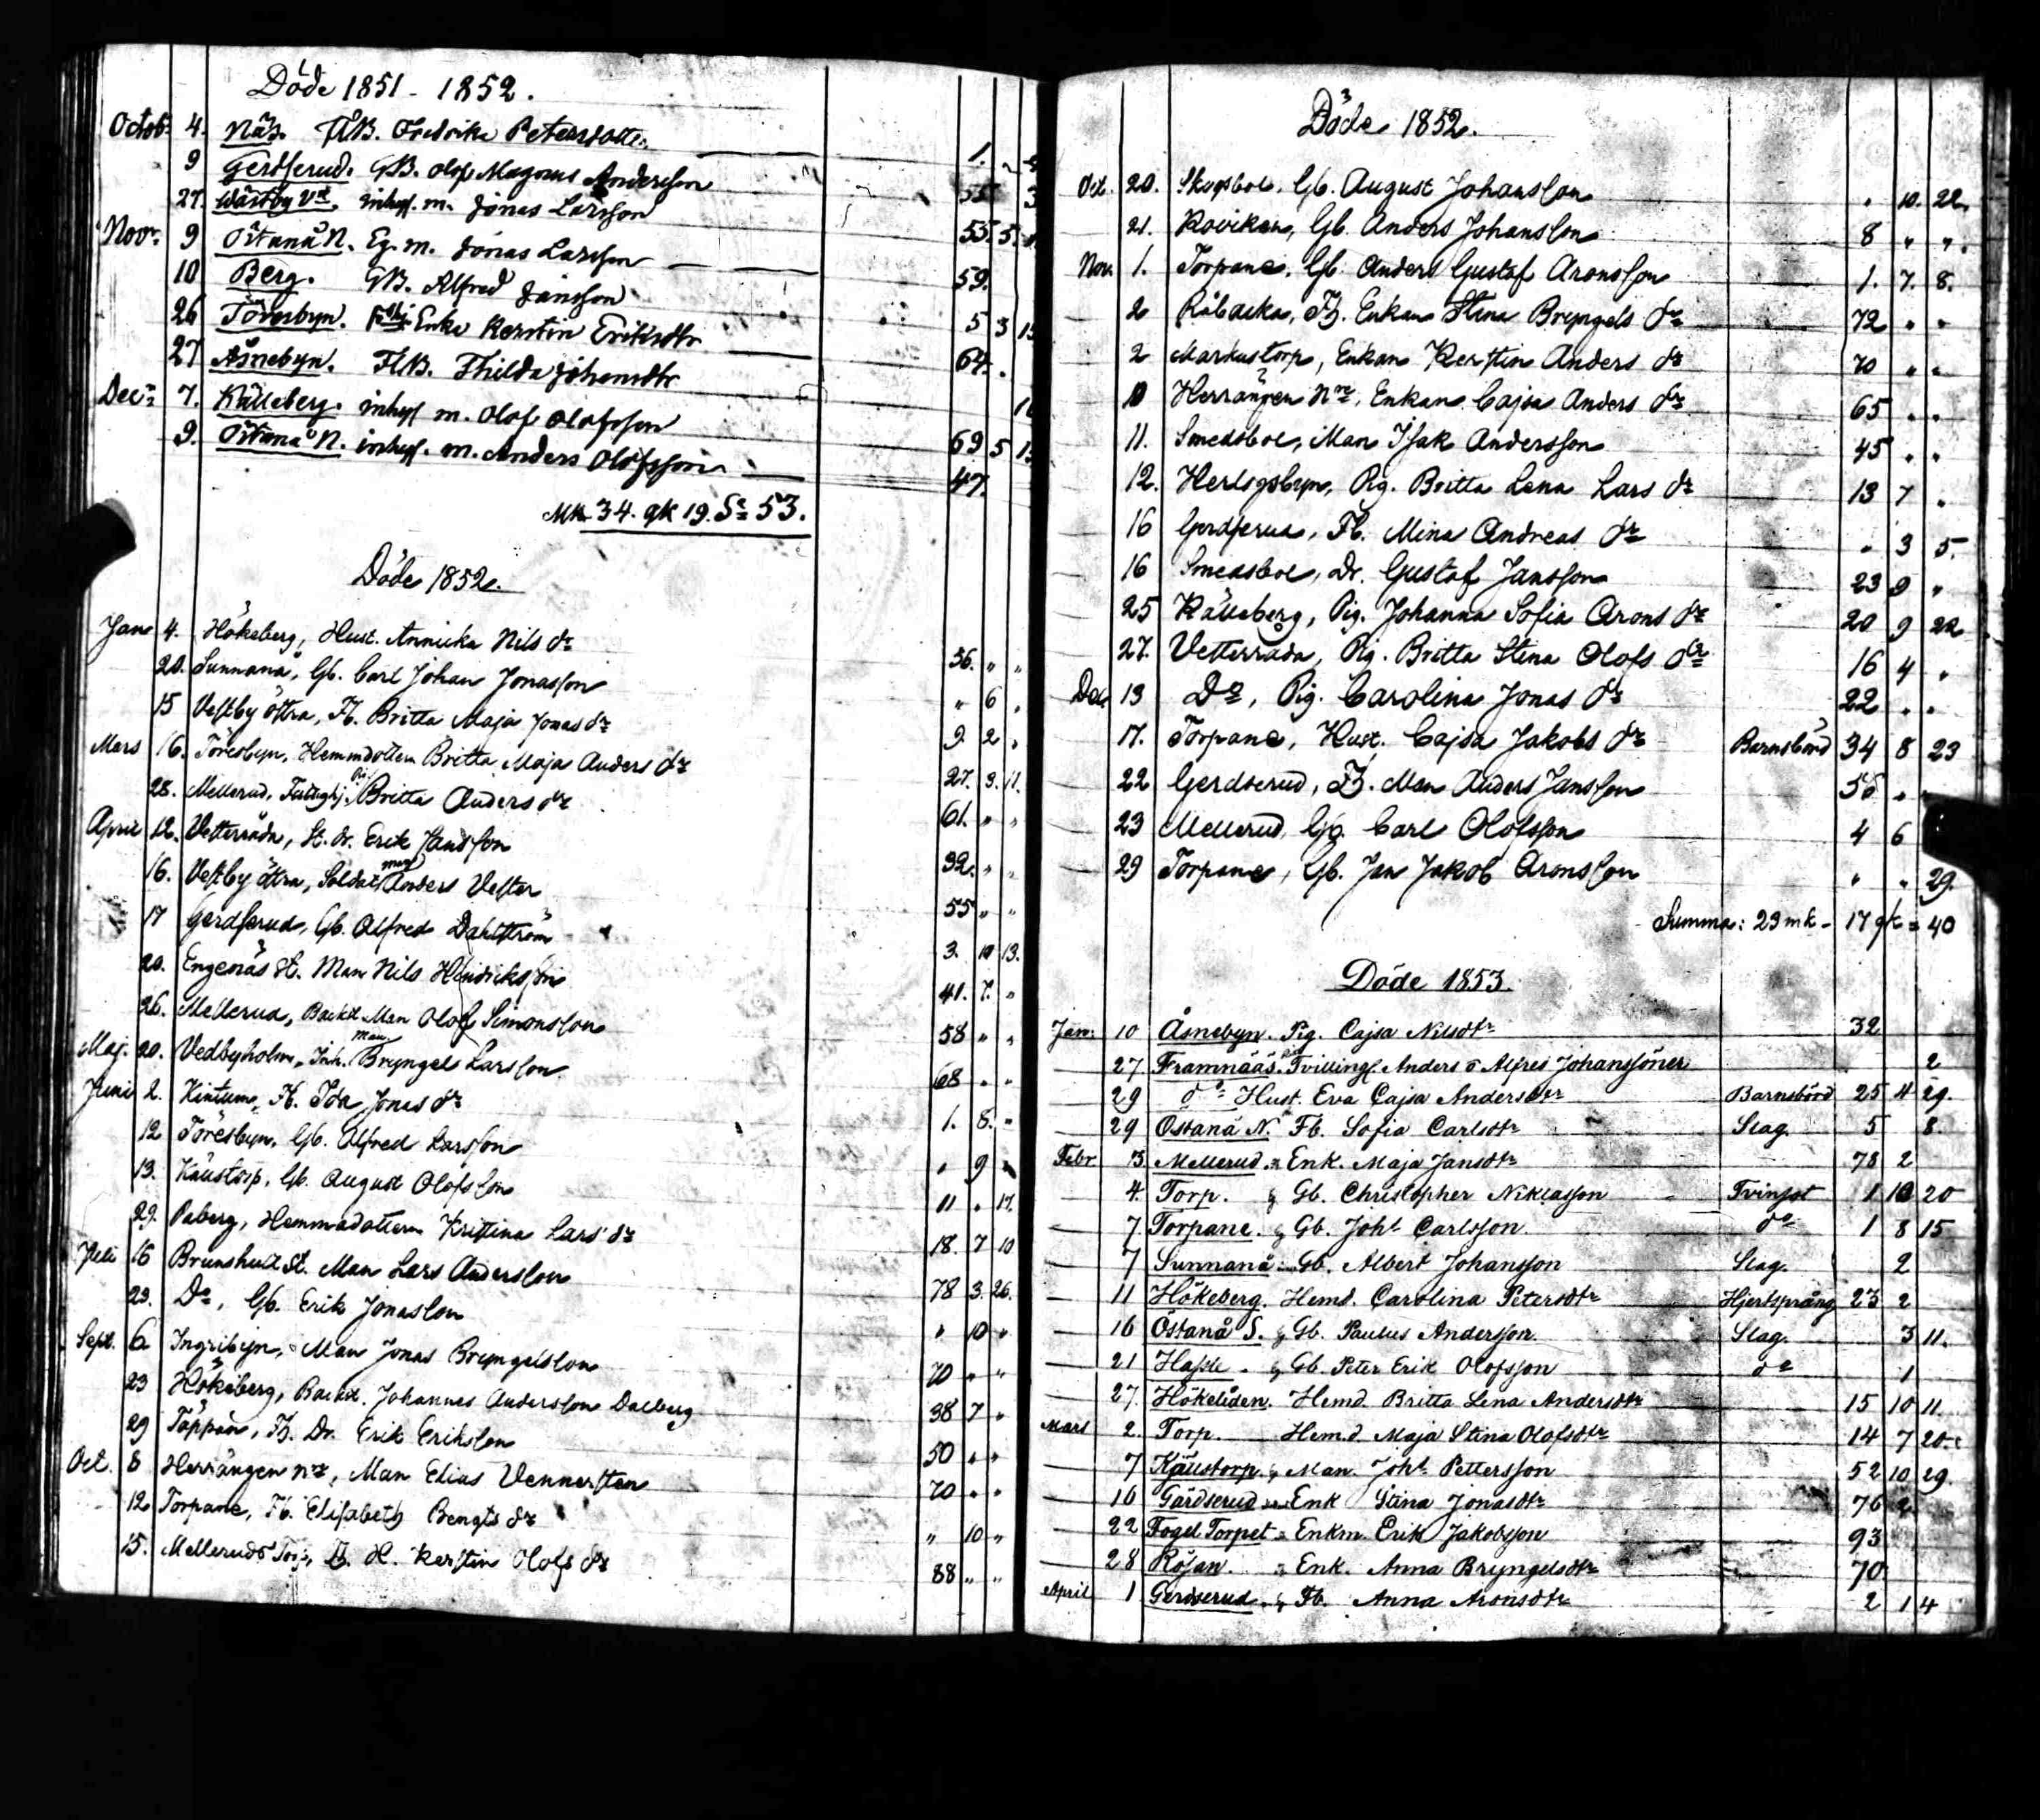 Döde 1851 - 1852.
Octob. 4. Näs. FlB. Fredrika Petersdotter 1.
9 Gerdserud. GB. Olof Magnus Andersson 55
27. Wästby Vst. inhys. m. Jonas Larsson 53. 5.
Novr. 9 Östanå N. Eg. m. Jonas Larsson 59.
10 Berg. GB. Alfred Jansson 5 3 15
26 Töresbyn. Enka Kerstin Eriksdtr 64.
27 Åsnebyn. FlB. Thilda Johansdtr
Decr 7. Källeberg. inhys m. Olof Olofsson 69 5
9. Östanå N. inhys. m. Anders Olofsson 47.
Mk 34. qk 19. Sa 53.
Döde 1852.
Jan 4. Hökeberg, Hust. Annicka Nils dr 56. " "
20. Sunnanå, Gb. Carl Johan Jonasson " 6 "
15 Vestby östra, Fb. Britta Maja Jonas dr 9 2 "
Mars 16. Töresbyn, Hemmdottern Britta Maja Anders dr 27. 3. 11.
28. Mellerud, Fattighj. Britta Anders dr 61. " "
April 12. Vetterråda, St. dr. Erik Jansson 32. " "
16. Vestby östra, Soldat man Anders Vester 55 " "
17 Gerdserud, Gb. Alfred Dahlström 3. 10 13.
20. Engenäs St. Man Nils Hindricksson 41. 7. "
26. Mellerud, Backst. Man Olof Simonsson 58 " "
Maj. 20. Vedbyholm, Inh. man Bryngel Larsson 68 " "
Juni 2. Kintum, Fb. Ida Jonas dr 1. 8. "
12 Töresbyn, Gb. Alfred Larsson " 9 "
13. Källstorp, Gb. August Olofsson 11 " 17.
29. Paberg, Hemmadottern Kristina Lars dr 18. 7 10
Juli 16 Brunshult St. Man Lars Andersson 78 3. 26.
23. Do, Gb. Erik Jonasson " 10 "
Sept. 6 Ingribyn, Man Jonas Bryngelsson 70 " "
23 Hökeberg, Backst. Johannes Andersson Dalberg 38 7 "
29 Täppan, Fh. Dr. Erik Eriksson 50 " "
Oct. 8 Herrängen nra, Man Elias Vennersten 70 " "
12 Torpane, Fb. Elisabeth Bengts dr " 10 "
15. Melleruds Torp, Fh. H. Kerstin Olofs dr 88 " "
Döde 1852.
Oct. 20. Skogsbol, Gb. August Johansson " 10. 22.
21. Roviken, Gb. Anders Johansson 8 " "
Nov. 1. Torpane, Gb. Anders Gustaf Aronsson 1. 7. 8.
2 Råbacka, Fh. Enkan Stina Bryngels dr 72 " "
2 Markustorp, Enkan Kerstin Anders dr 70 " "
10 Herrängen Nra, Enkan Cajsa Anders dr 65 " "
11. Smedsbol, Man Isak Andersson 45 " "
12. Herlogsbyn, Pig. Britta Lena Lars dr 13 7 "
16 Gerdserud, Fb. Mina Andreas dr " 3 5.
16 Smedsbol, Dr. Gustaf Jansson 23 9 "
25 Källeberg, Pig. Johanna Sofia Arons dr 20 9 22
27. Vetterråda, Pig. Britta Stina Olofs dr 16 4 "
Dec. 13 Do, Pig. Carolina Jonas dr 22 " "
17. Torpane, Hust. Cajsa Jakobs dr Barnsbörd 34 8 23
22 Gerdserud, Fh. Man Anders Jansson 56 "
23 Mellerud, Gb. Carl Olofsson 4 6
29 Torpane, Gb. Jan Jakob Aronsson " " 29.
Summa: 23 mk - 17 qk = 40
Döde 1853.
Jan: 10 Åsnebyn. Pig. Cajsa Nilsdtr 32
27 Framnääs. Tvilling. Anders o Alfred Johanssöner 2
29 do Hust. Eva Cajsa Andersdtr Barnsbörd 25 4 29.
29 Östanå N. Fb. Sofia Carlsdtr Slag. 5 8.
Febr 3 Mellerud Enk. Maja Jansdtr 78 2
4. Torp. Gb. Christopher Niklasson Tvinsot 1 10 20
7 Torpane. Gb. Joht Carlsson. do 1 8 15
7 Sunnanå Gb. Albert Johansson Slag. 2
11 Hökeberg. Hemd. Carolina Petersdtr Hjertsprång 23 2
16 Östanå S. Gb. Paulus Andersson. Slag. 3 11.
21 Gb. Peter Erik Olofsson do 1
27. Hökeliden. Hemd. Britta Lena Andersdtr 15 10 11.
Mars 2. Torp. Hemd. Maja Stina Olofsdtr 14 7 20.
7 Källstorp. Man. Joht Pettersson 52 10 29.
16 Gärdserud Enk Stina Jonasdtr 76 2
22 Fogel Torpet Enkm. Erik Jakobsson 93
28 Röjan. Enk. Anna Bryngelsdtr 70
April 1 Gerdserud. Fb. Anna Aronsdtr 2 1 4